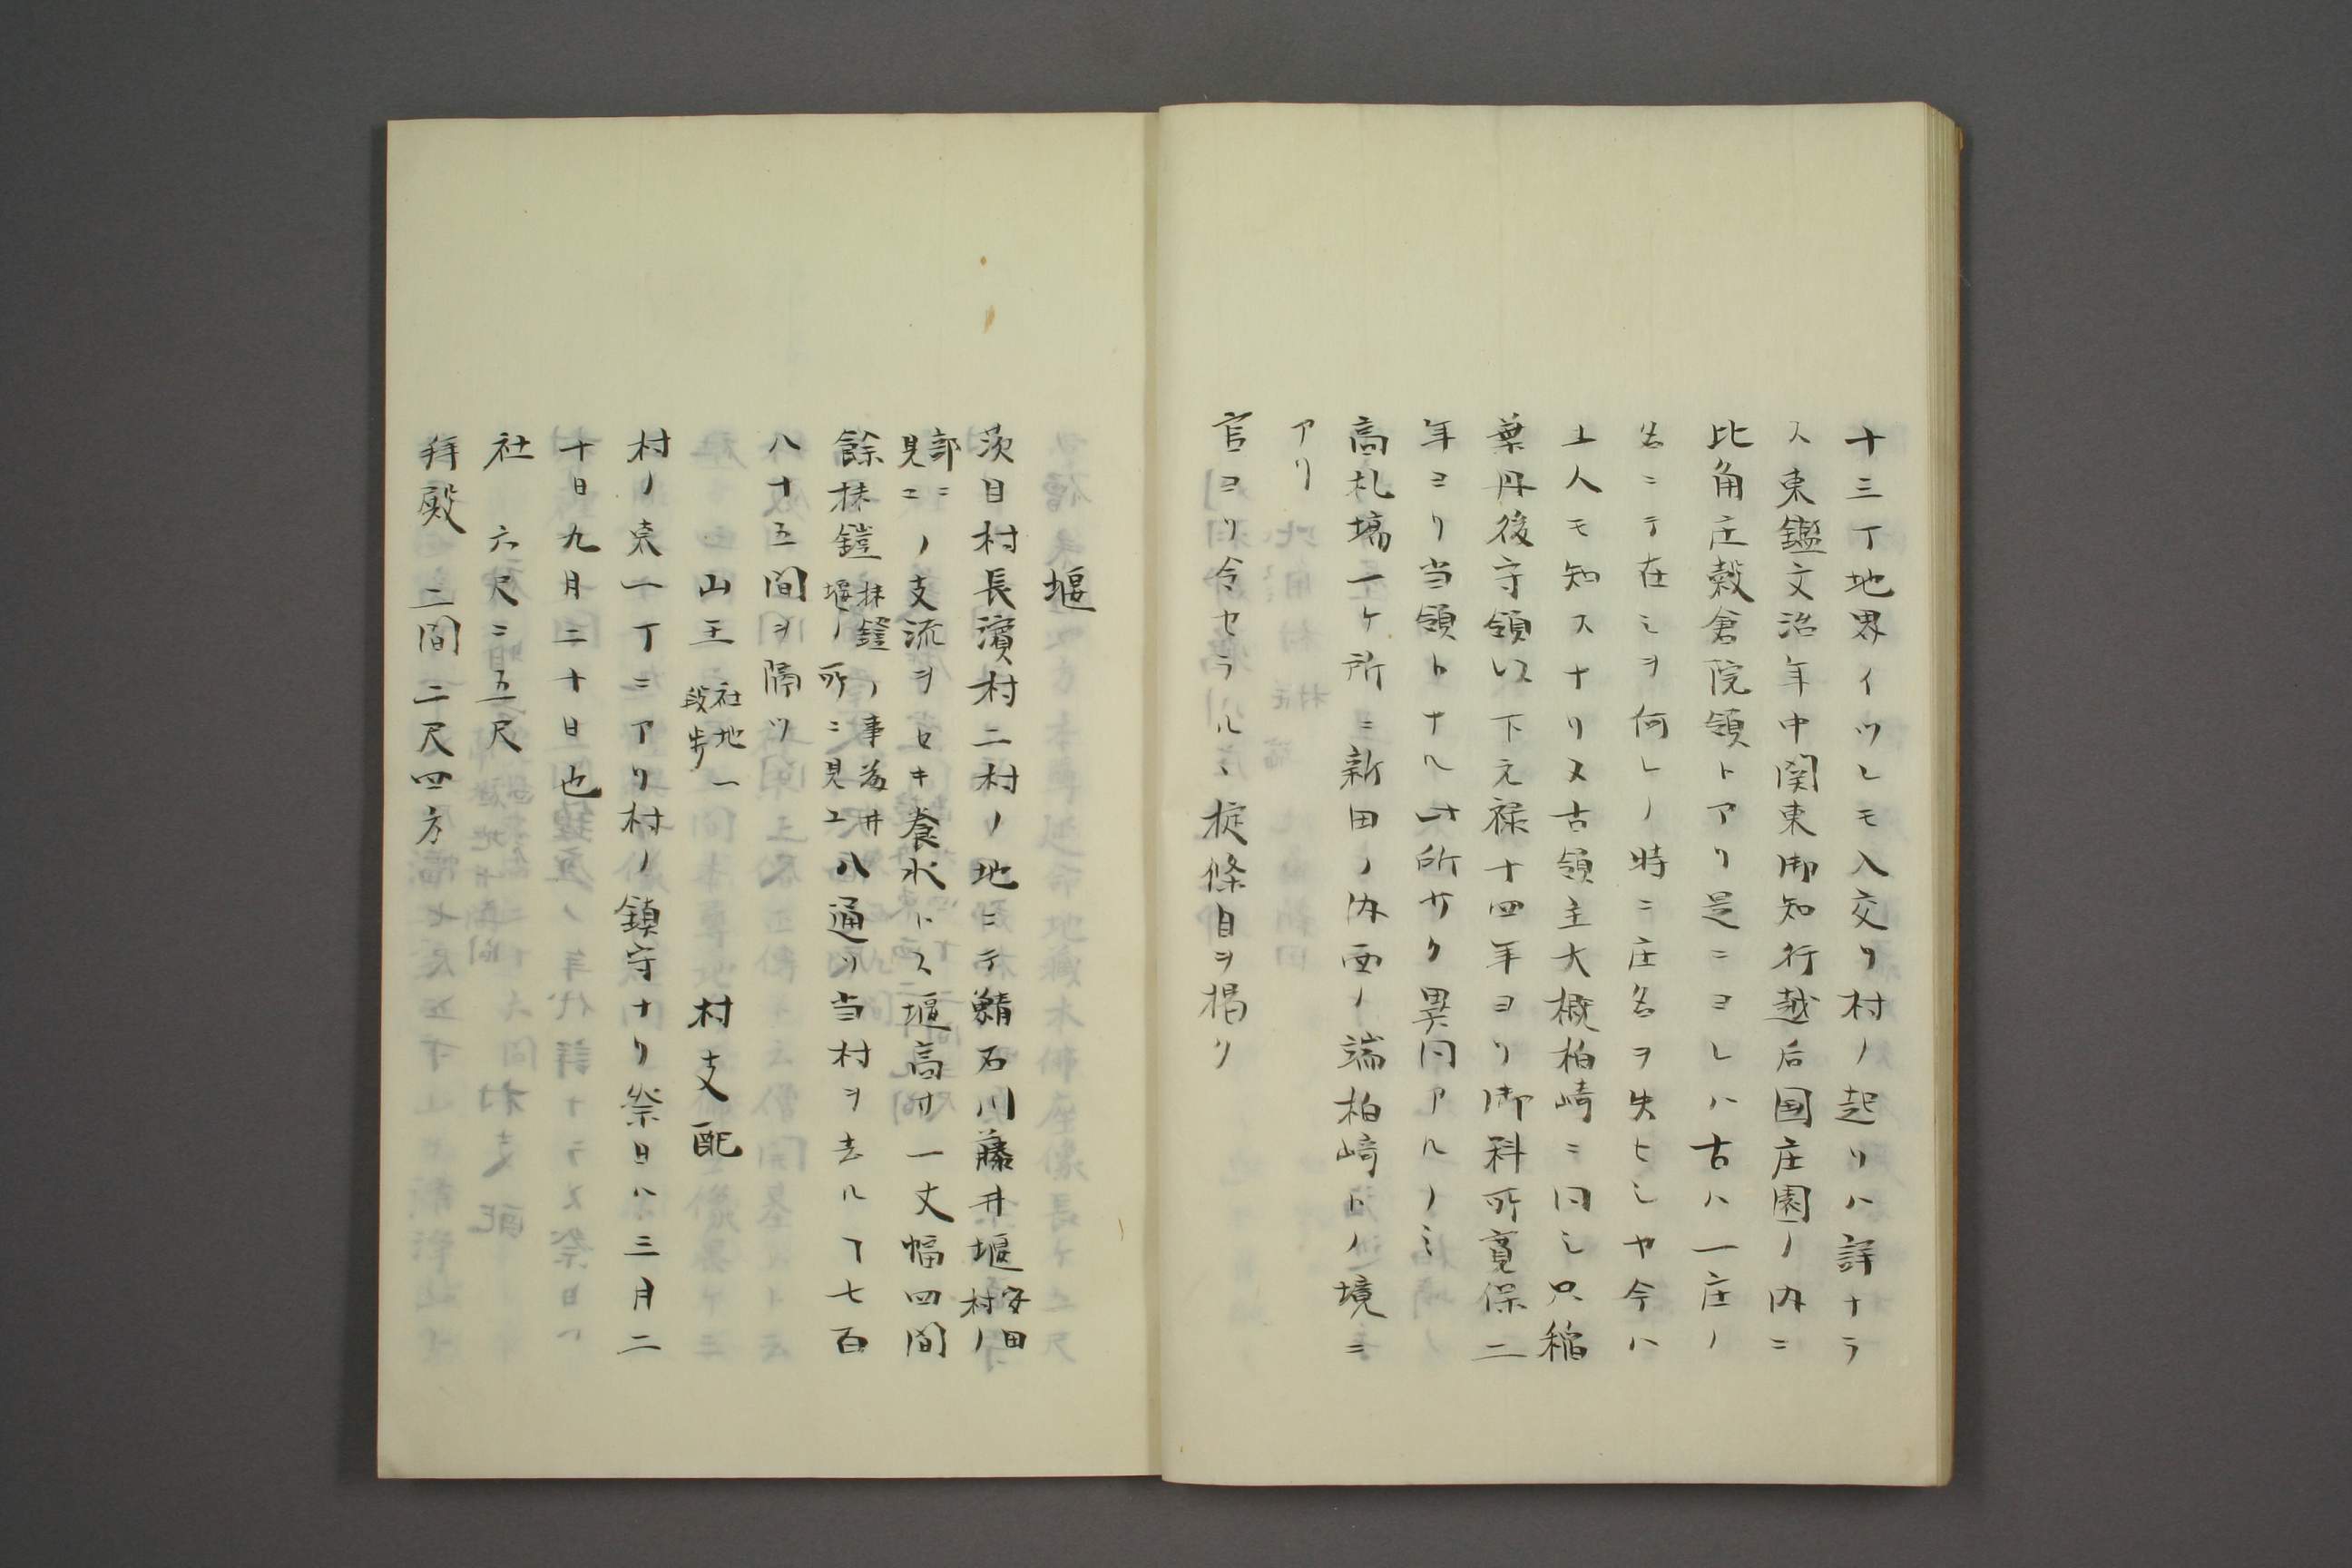 十三丁地界イツレモ入交リ村ノ起リハ詳ナラ
ス東鑑文治年中関東御知行越后国庄園ノ内ニ
比角庄穀倉院領トアリ是ニヨレハ古ハ一庄ノ
名ニテ在シヲ何レノ時ニ庄名ヲ失ヒシヤ今ハ
土人モ知スナリ又古領主大概柏崎ニ同シ只稲
葉丹後守領以下元禄十四年ヨリ御料所寛保二
年ヨリ当領トナル此所サク異同アルノミ
高札場一ケ所ニ新田ノ内西ノ端柏崎トノ境ニ
アリ
官ヨリ令セラル、掟條目ヲ掲ク
堰
茨目村長濵村二村ノ地ニテ鯖石川藤井堰安田村ノ
部ニ見エノ支流ヲセキ養水トス堰高サ一丈幅四間
餘抹鐙抹鐙ノ事藤井堰ノ所ニ見エ八通リ当村ヲ去ルヿ七百
八十五間ヲ隔ツ
山王 社地一段歩 村支配
村ノ東一丁ニアリ村ノ鎮守ナリ祭日ハ三月二
十日九月二十日也
社 六尺ニ五尺
拜殿 二間二尺四方